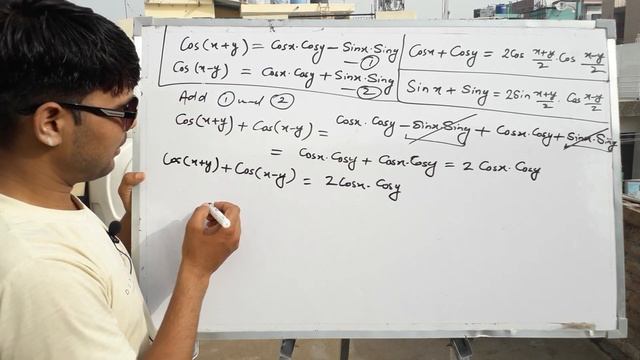 Cos(x+y) = Cosx·Cosy − Sinx·Siny —①
Cos(x−y) = Cosx·Cosy + Sinx·Siny —②
Cosx + Cosy = 2Cos (x+y)/2 · Cos (x−y)/2
Sinx + Siny = 2Sin (x+y)/2 · Cos (x−y)/2
Add ① and ②
Cos(x+y) + Cos(x−y) = Cosx·Cosy − Sinx·Siny + Cosx·Cosy + Sinx·Siny
= Cosx·Cosy + Cosx·Cosy = 2 Cosx·Cosy
Cos(x+y) + Cos(x−y) = 2Cosx·Cosy